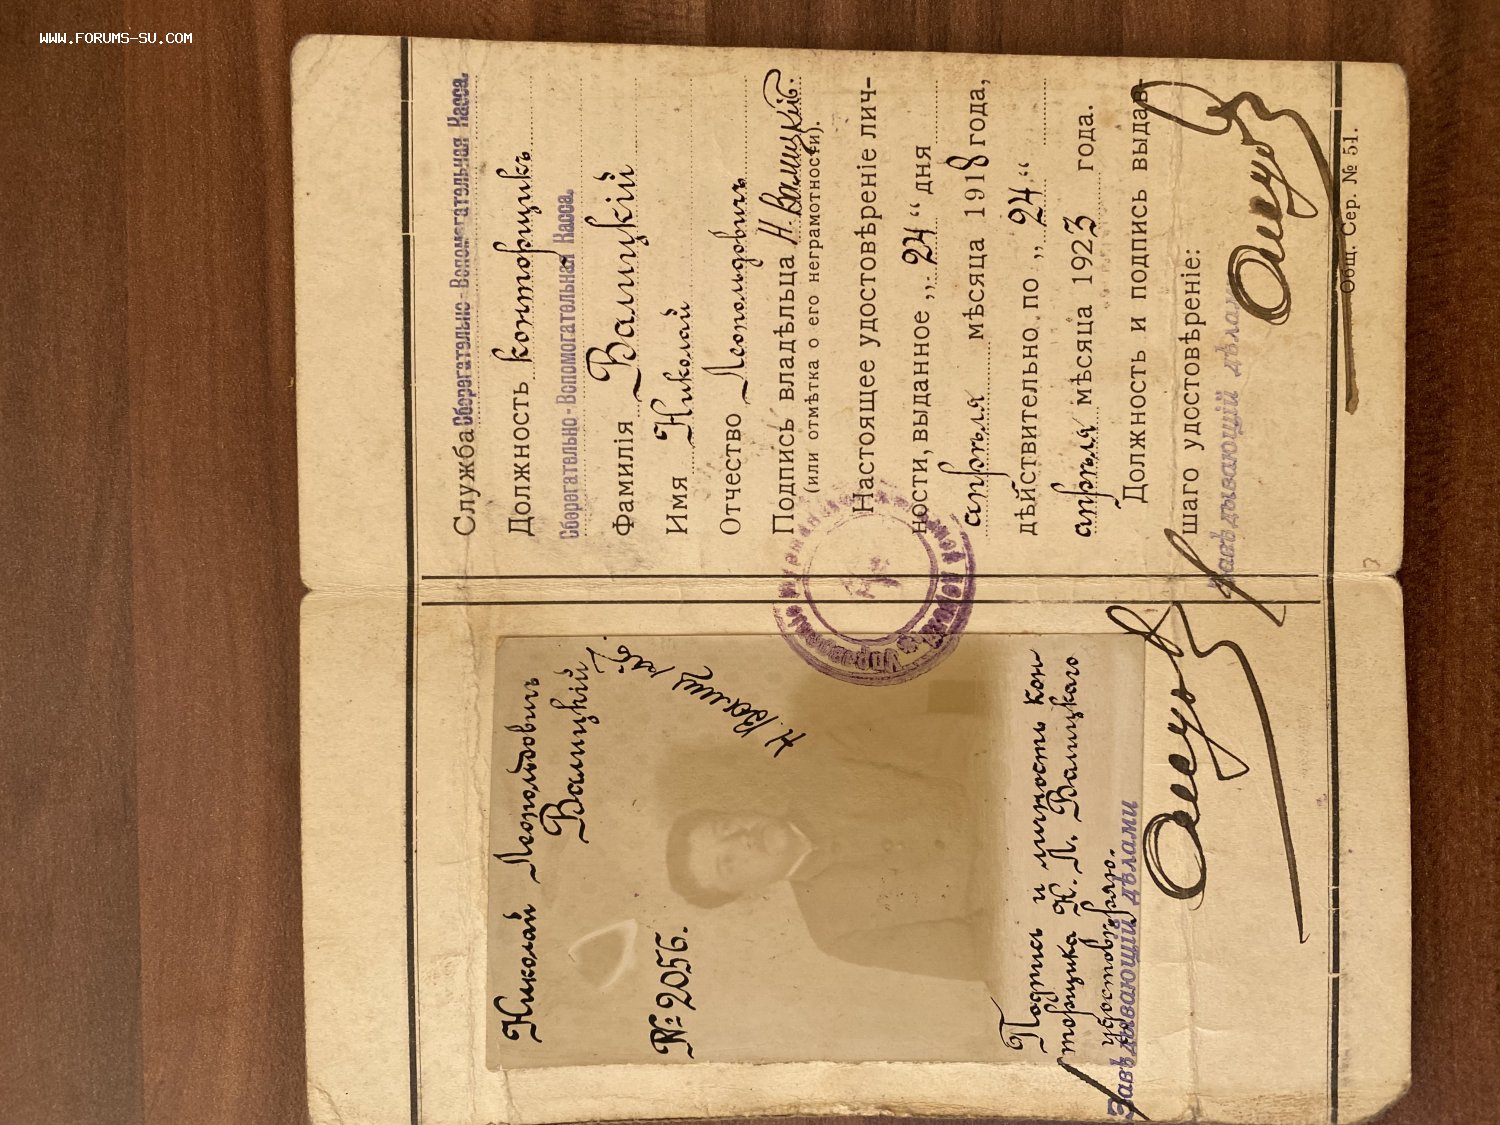 WWW.FORUMS-SU.COM
Николай Леопольдовичъ
Валицкій
№ 2056.
Н. Валицкій.
Подпись и личность кон-
торщика Н. Л. Валицкаго
удостовѣряю.
Завѣдывающій дѣлами
Служба Сберегательно-Вспомогательная Касса.
Должность конторщикъ
Сберегательно-Вспомогательная Касса.
Фамилія Валицкій
Имя Николай
Отчество Леопольдовичъ
Подпись владѣльца Н. Валицкій.
(или отмѣтка о его неграмотности).
Настоящее удостовѣреніе лич-
ности, выданное „24“ дня
апрѣля мѣсяца 1918 года,
дѣйствительно по „24“
апрѣля мѣсяца 1923 года.
Должность и подпись выдав-
шаго удостовѣреніе:
Завѣдывающій дѣлами
Общ. Сер. № 51.
Управленіе